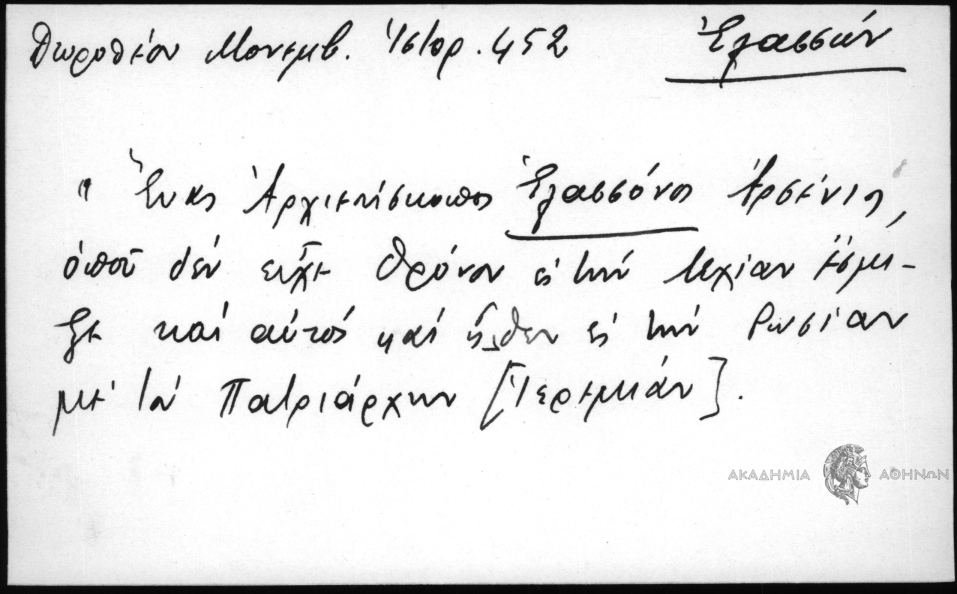 Δωροθέου Μονεμβ. Ἱστορ. 452 Ἐλασσών
" Ἕνας Ἀρχιεπίσκοπος Ἐλασσόνος Ἀρσένιος,
ὁποῦ δὲν εἶχε θρόνον εἰς τὴν Λεχίαν ἔσμι-
ξε καὶ αὐτὸς καὶ ἦλθεν εἰς τὴν Ρωσίαν
μὲ τὸν Πατριάρχην [Ἱερεμίαν].
ΑΚΑΔΗΜΙΑ ΑΘΗΝΩΝ